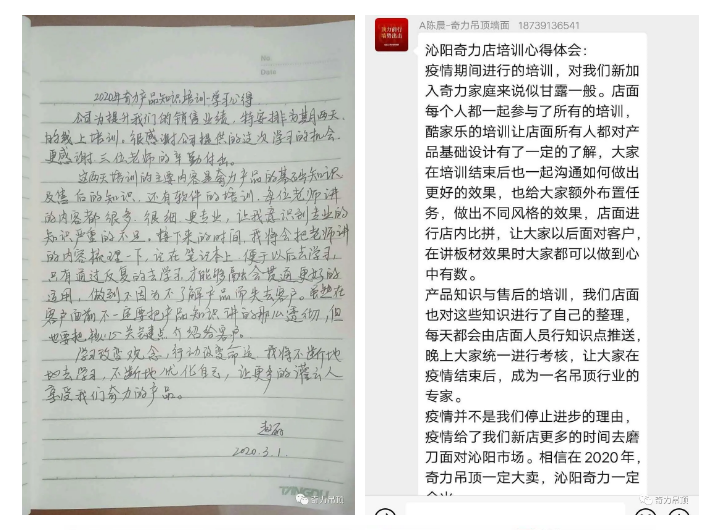 No
Date
2020年奇力产品知识培训-学习心得
公司为提升我们的销售业绩，特安排为期两天
的线上培训，很感谢公司提供的这次学习的机会
更感谢三位老师的辛勤付出。
这两天培训的主要内容是奇力产品的基础知识
及售后的知识，还有软件的培训，每位老师讲
的内容都很多，很细，更专业，让我意识到专业的
知识严重的不足，接下来的时间，我将会把老师讲
的内容梳理一下，记在笔记本上，便于以后去学习，
只有通过反复的去学习，才能够融会贯通更好的
运用，做到不因为不了解产品而失去客户。虽然在
客户面前不一定要把产品知识讲的那么透彻，但
也要把核心关键点介绍给客户。
学习改变观念，行动改变命运，我将不断地
地去学习，不断地优化自己，让更多的灌云人
享受我们奇力的产品。
赵磊
2020.3.1
奇力吊顶
奇力前行
A陈晨-奇力吊顶墙面 18739136541
沁阳奇力店培训心得体会：
疫情期间进行的培训，对我们新加
入奇力家庭来说似甘露一般。店面
每个人都一起参与了所有的培训，
酷家乐的培训让店面所有人都对产
品基础设计有了一定的了解，大家
在培训结束后也一起沟通如何做出
更好的效果，也给大家额外布置任
务，做出不同风格的效果，店面进
行店内比拼，让大家以后面对客户，
在讲板材效果时大家都可以做到心
中有数。
产品知识与售后的培训，我们店面
也对这些知识进行了自己的整理，
每天都会由店面人员行知识点推送，
晚上大家统一进行考核，让大家在
疫情结束后，成为一名吊顶行业的
专家。
疫情并不是我们停止进步的理由，
疫情给了我们新店更多的时间去磨
刀面对沁阳市场。相信在2020年，
奇力吊顶一定大卖，沁阳奇力一定
奇力吊顶